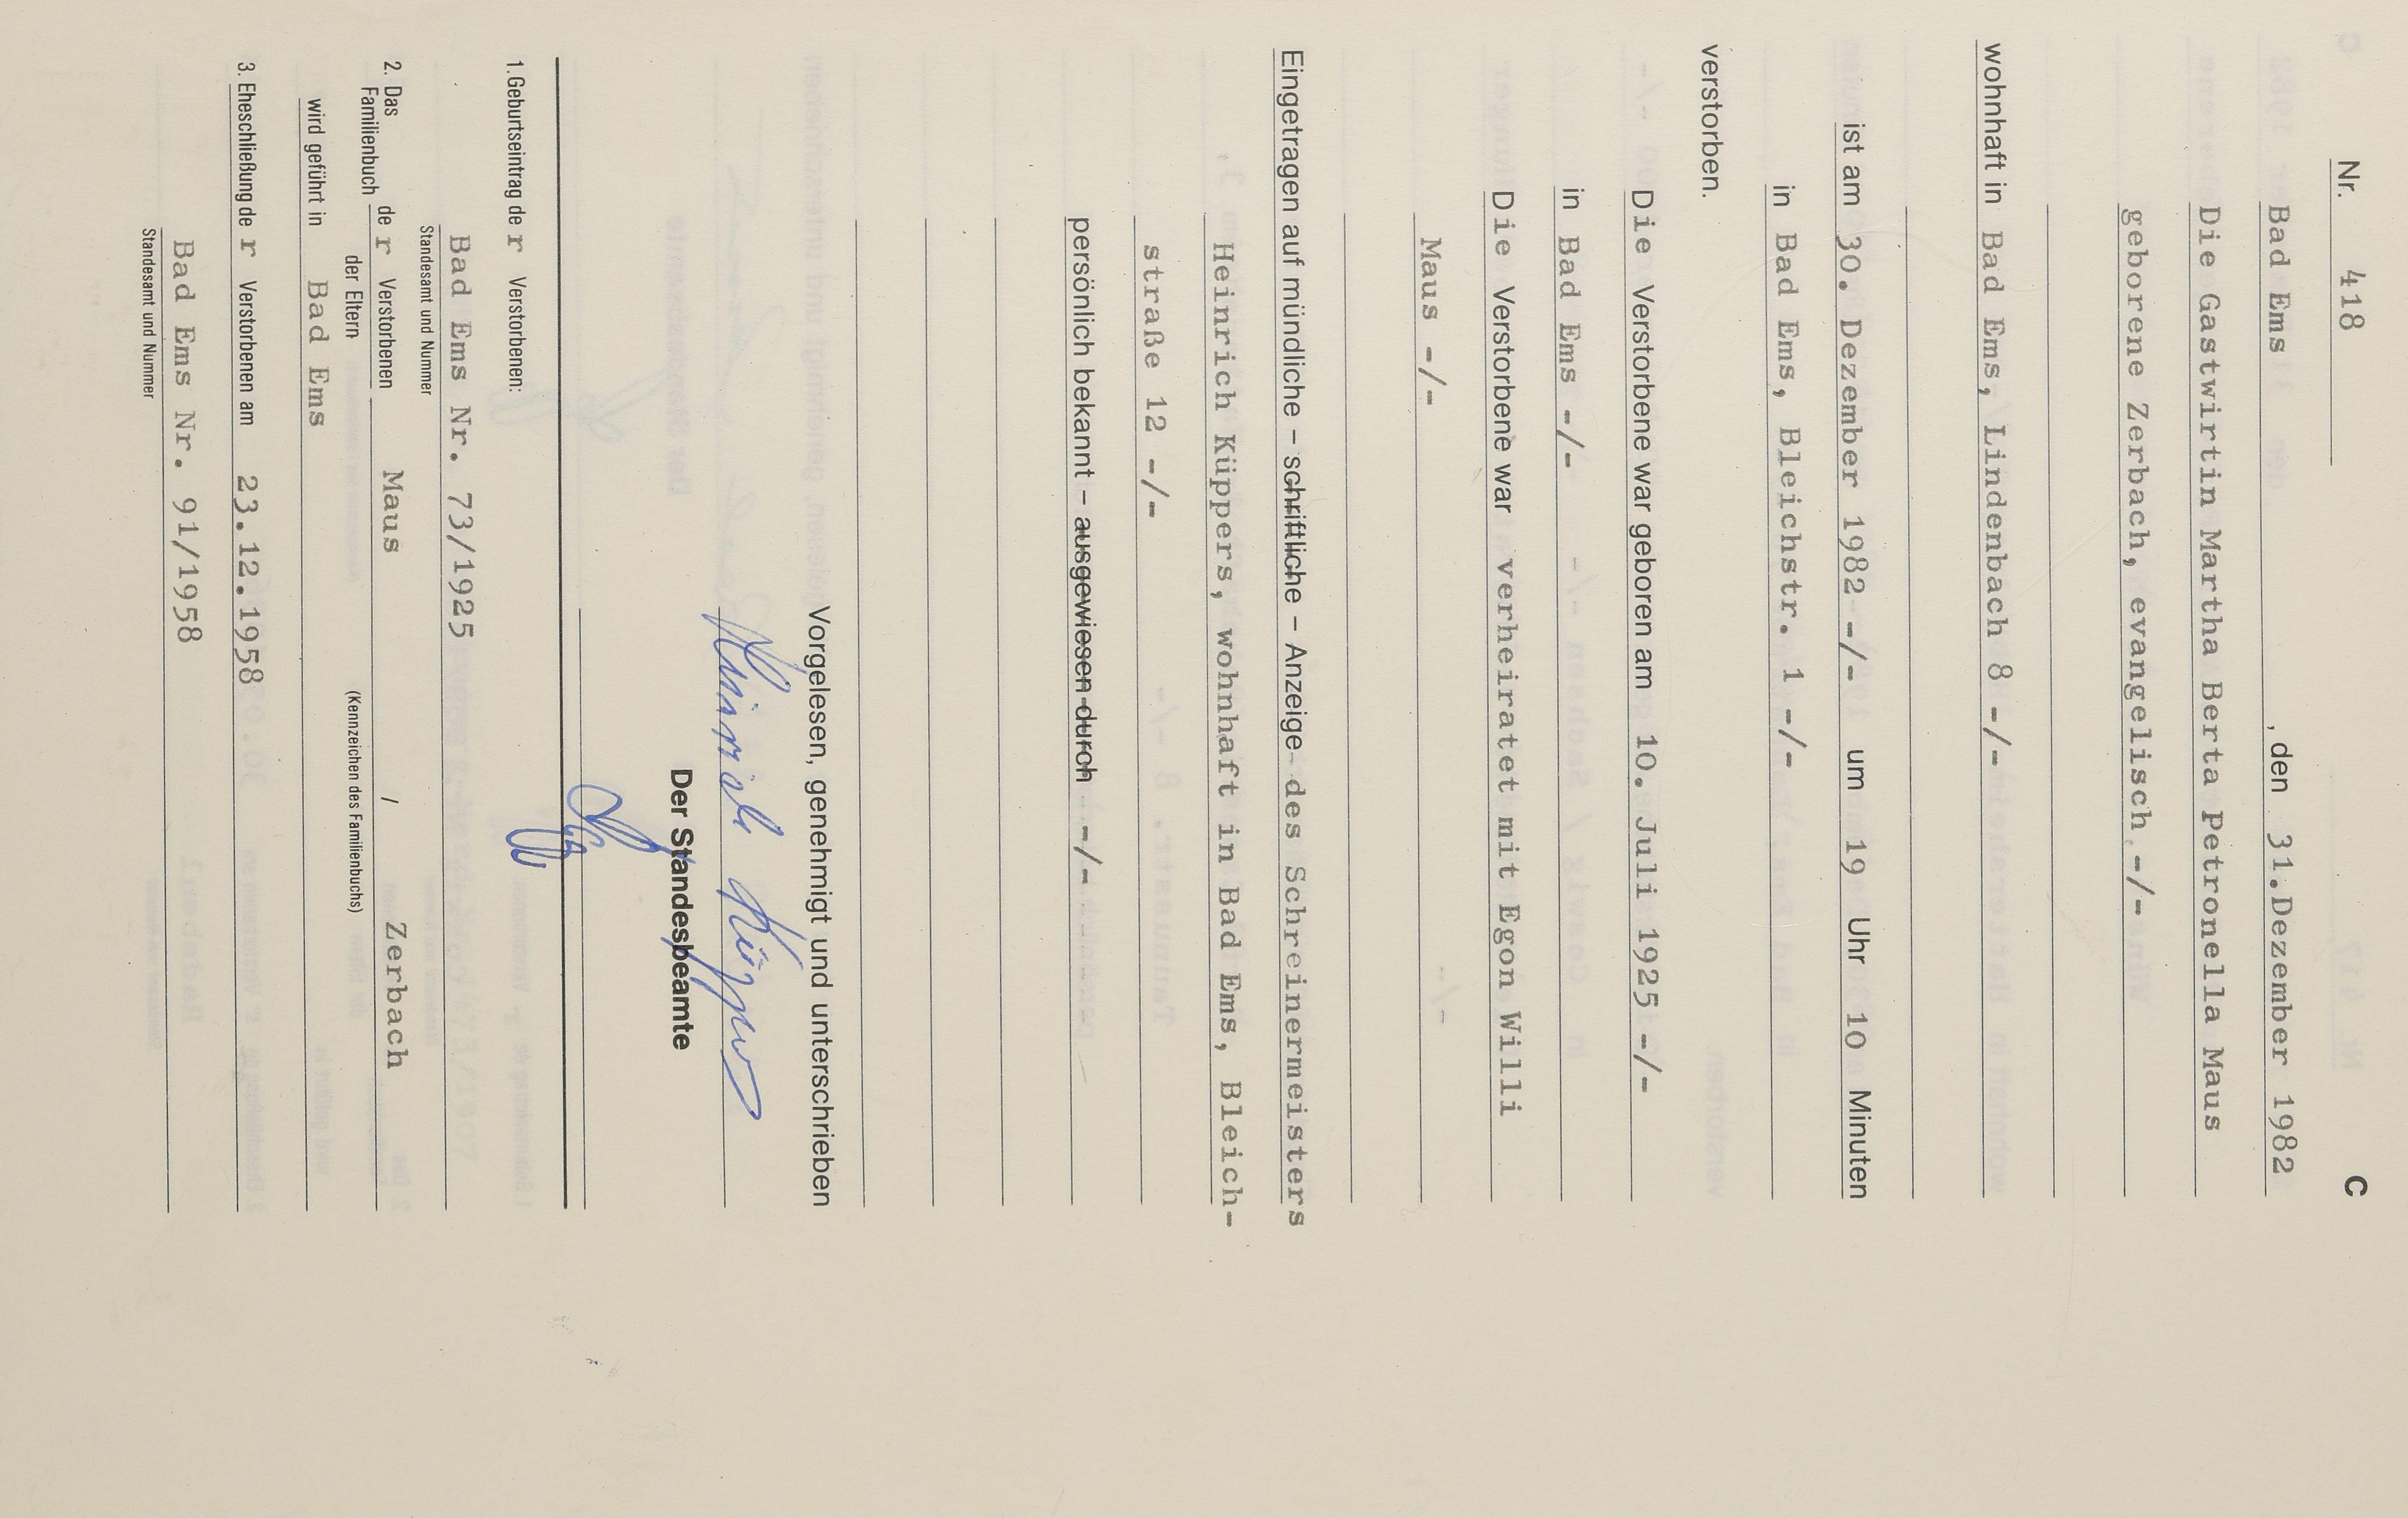 Nr. 418 C
Bad Ems , den 31.Dezember 1982
Die Gastwirtin Martha Berta Petronella Maus
geborene Zerbach, evangelisch -/-
wohnhaft in Bad Ems, Lindenbach 8 -/-
ist am 30. Dezember 1982 -/- um 19 Uhr 10 Minuten
in Bad Ems, Bleichstr. 1 -/-
verstorben.
Die Verstorbene war geboren am 10. Juli 1925 -/-
in Bad Ems -/-
Die Verstorbene war verheiratet mit Egon Willi
Maus -/-
Eingetragen auf mündliche – schriftliche – Anzeige des Schreinermeisters
Heinrich Küppers, wohnhaft in Bad Ems, Bleich-
straße 12 -/-
persönlich bekannt – ausgewiesen durch -/-
Vorgelesen, genehmigt und unterschrieben
Heinrich Küppers
Der Standesbeamte
1. Geburtseintrag der Verstorbenen:
Bad Ems Nr. 73/1925
Standesamt und Nummer
2. Das Familienbuch der Verstorbenen Maus / Zerbach
der Eltern (Kennzeichen des Familienbuchs)
wird geführt in Bad Ems
3. Eheschließung der Verstorbenen am 23.12.1958
Bad Ems Nr. 91/1958
Standesamt und Nummer